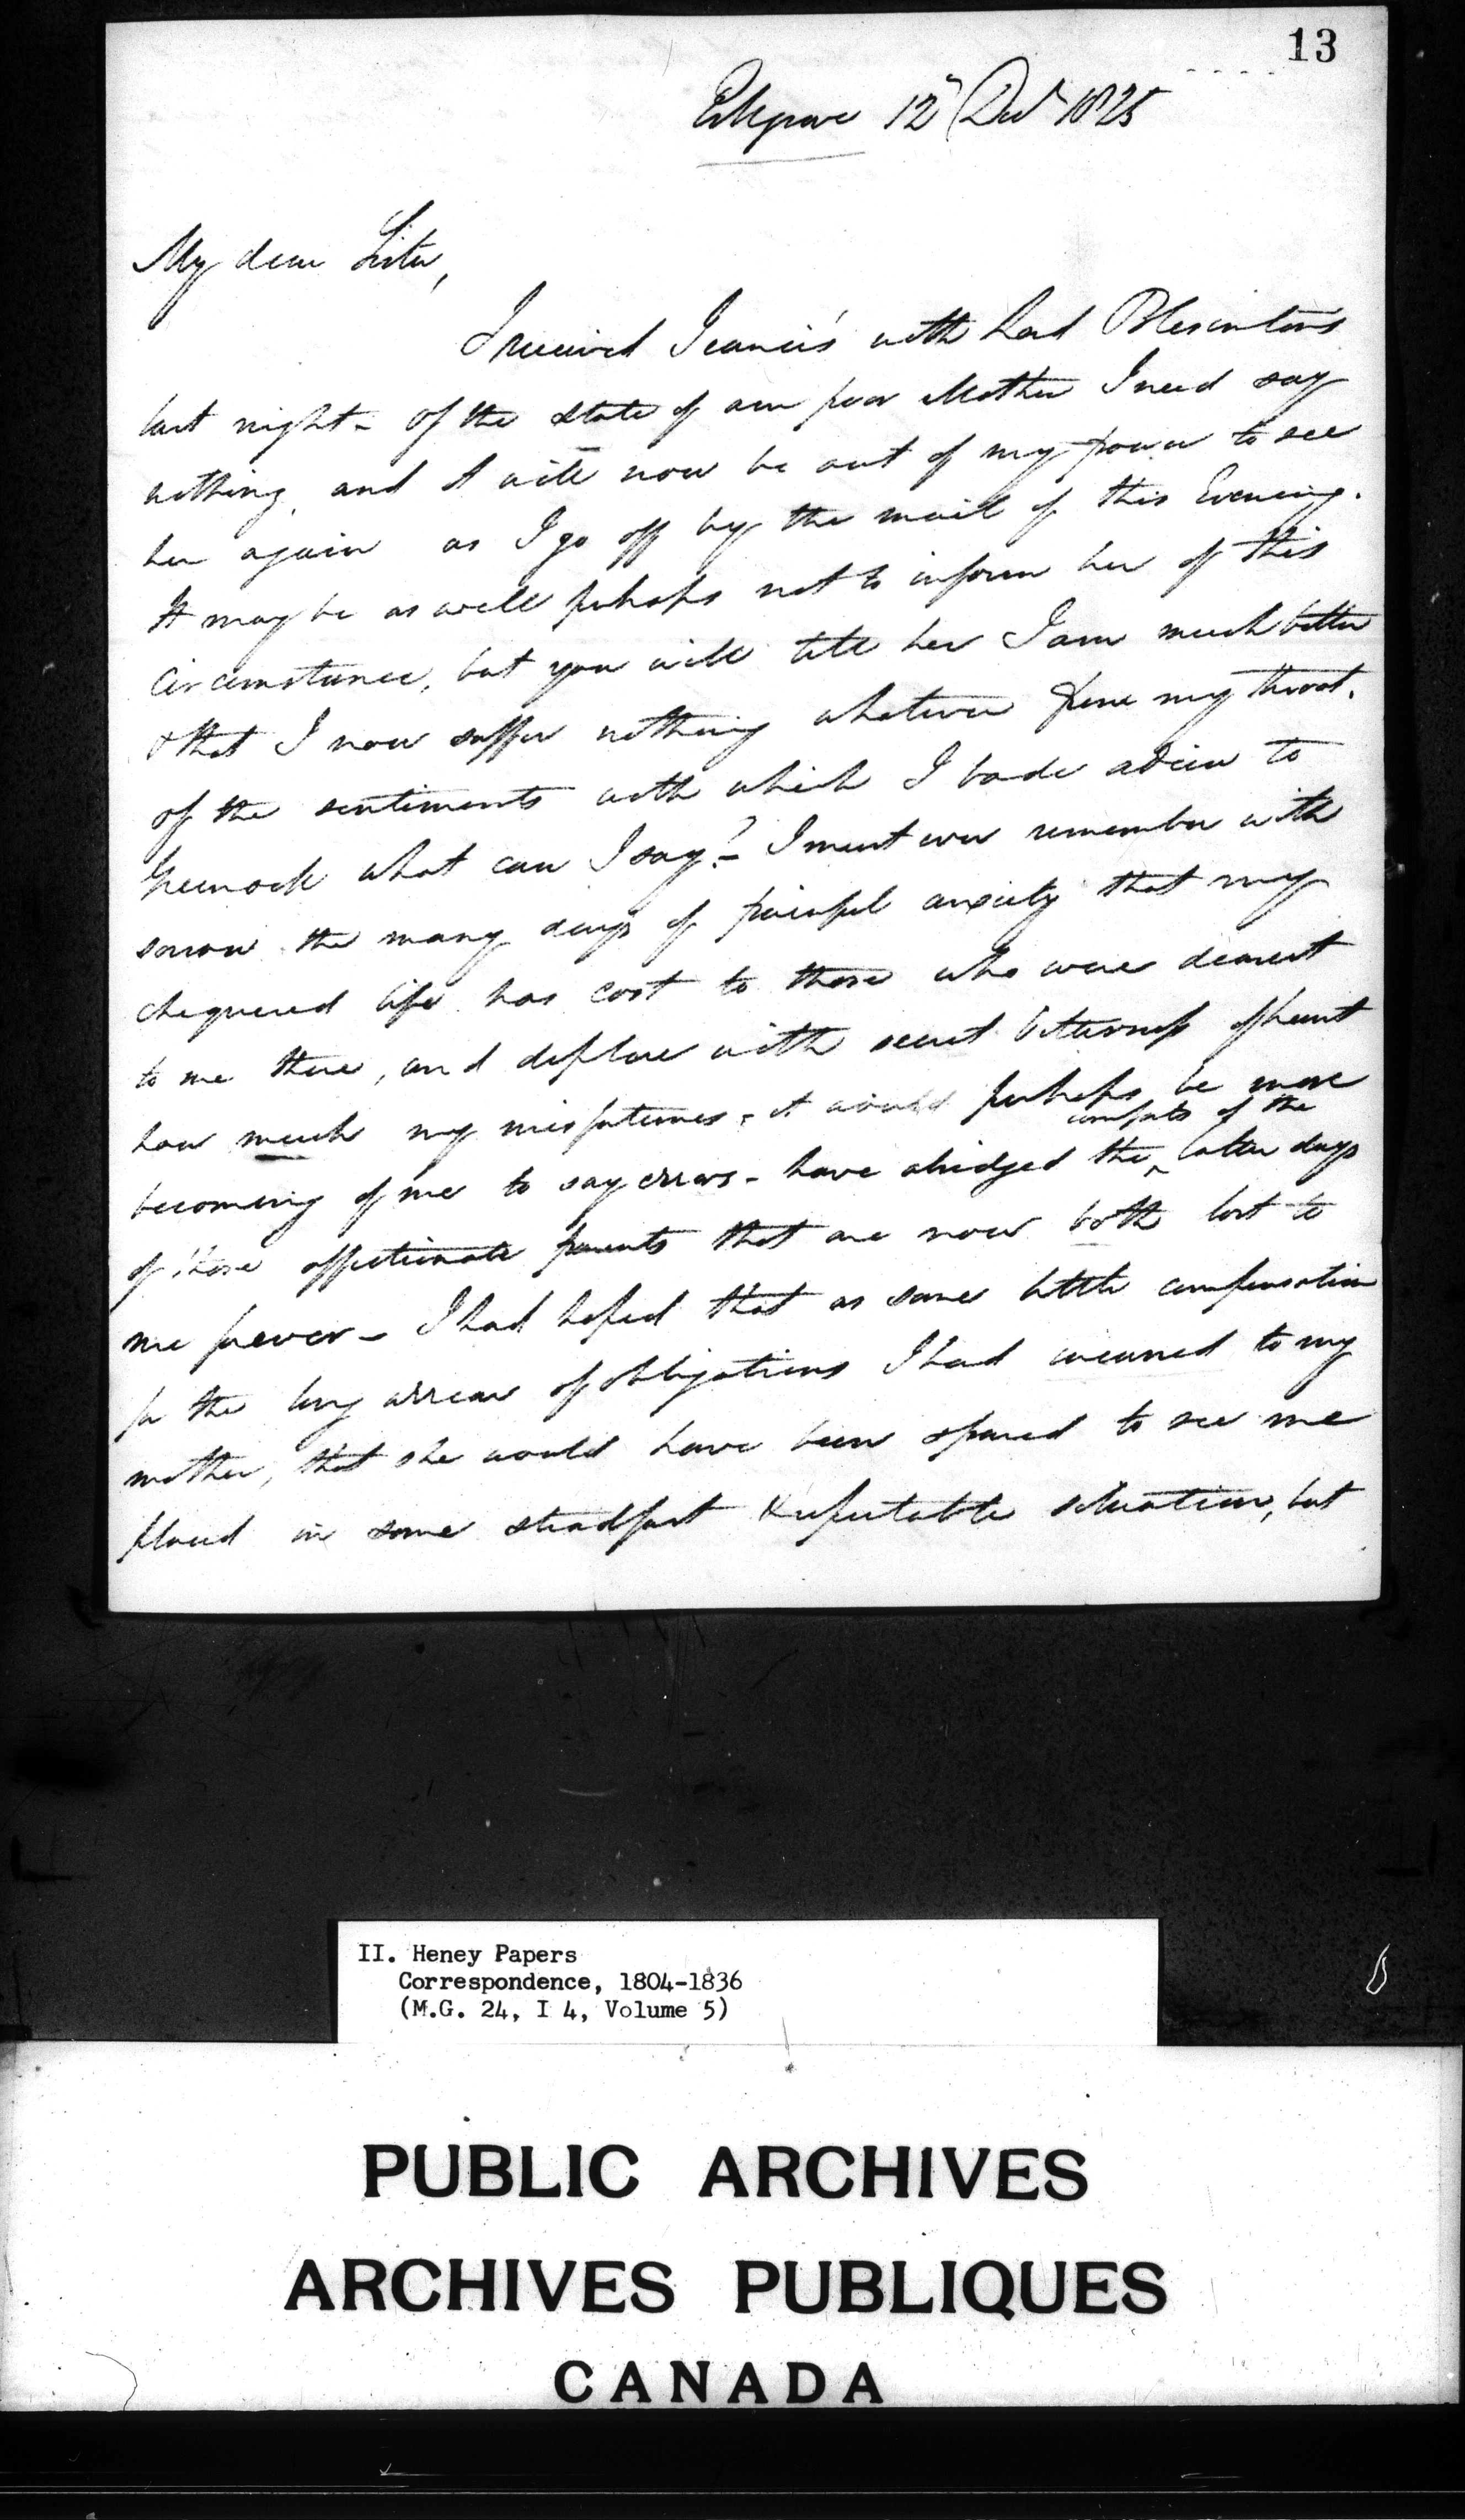 13
12 Decr 1825
My dear Sister,
I received Jeanie's with Lord Blesinton's
last night - of the state of our poor Mother I need say
nothing, and it will now be out of my power to see
her again as I go off by the mail of this Evening.
It may be as well perhaps not to inform her of this
circumstance, but you will tell her I am much better
& that I now suffer nothing whatever from my throat.
of the sentiments with which I bade adieu to
Greenock what can I say? - I must ever remember with
sorrow the many days of painful anxiety that my
chequered life has cost to those who were dearest
to me there, and deplore with secret bitterness of heart
how much my misfortunes - it would perhaps be more
becoming of me to say errors - have abridged the comforts of the latter days
of those affectionate parents that are now both lost to
me forever - I had hoped that as some little compensation
for the long arrear of obligations I had incurred to my
mother, that she would have been spared to see me
placed in some steadfast & respectable situation, but
II. Heney Papers
Correspondence, 1804-1836
(M.G. 24, I 4, Volume 5)
PUBLIC ARCHIVES
ARCHIVES PUBLIQUES
CANADA